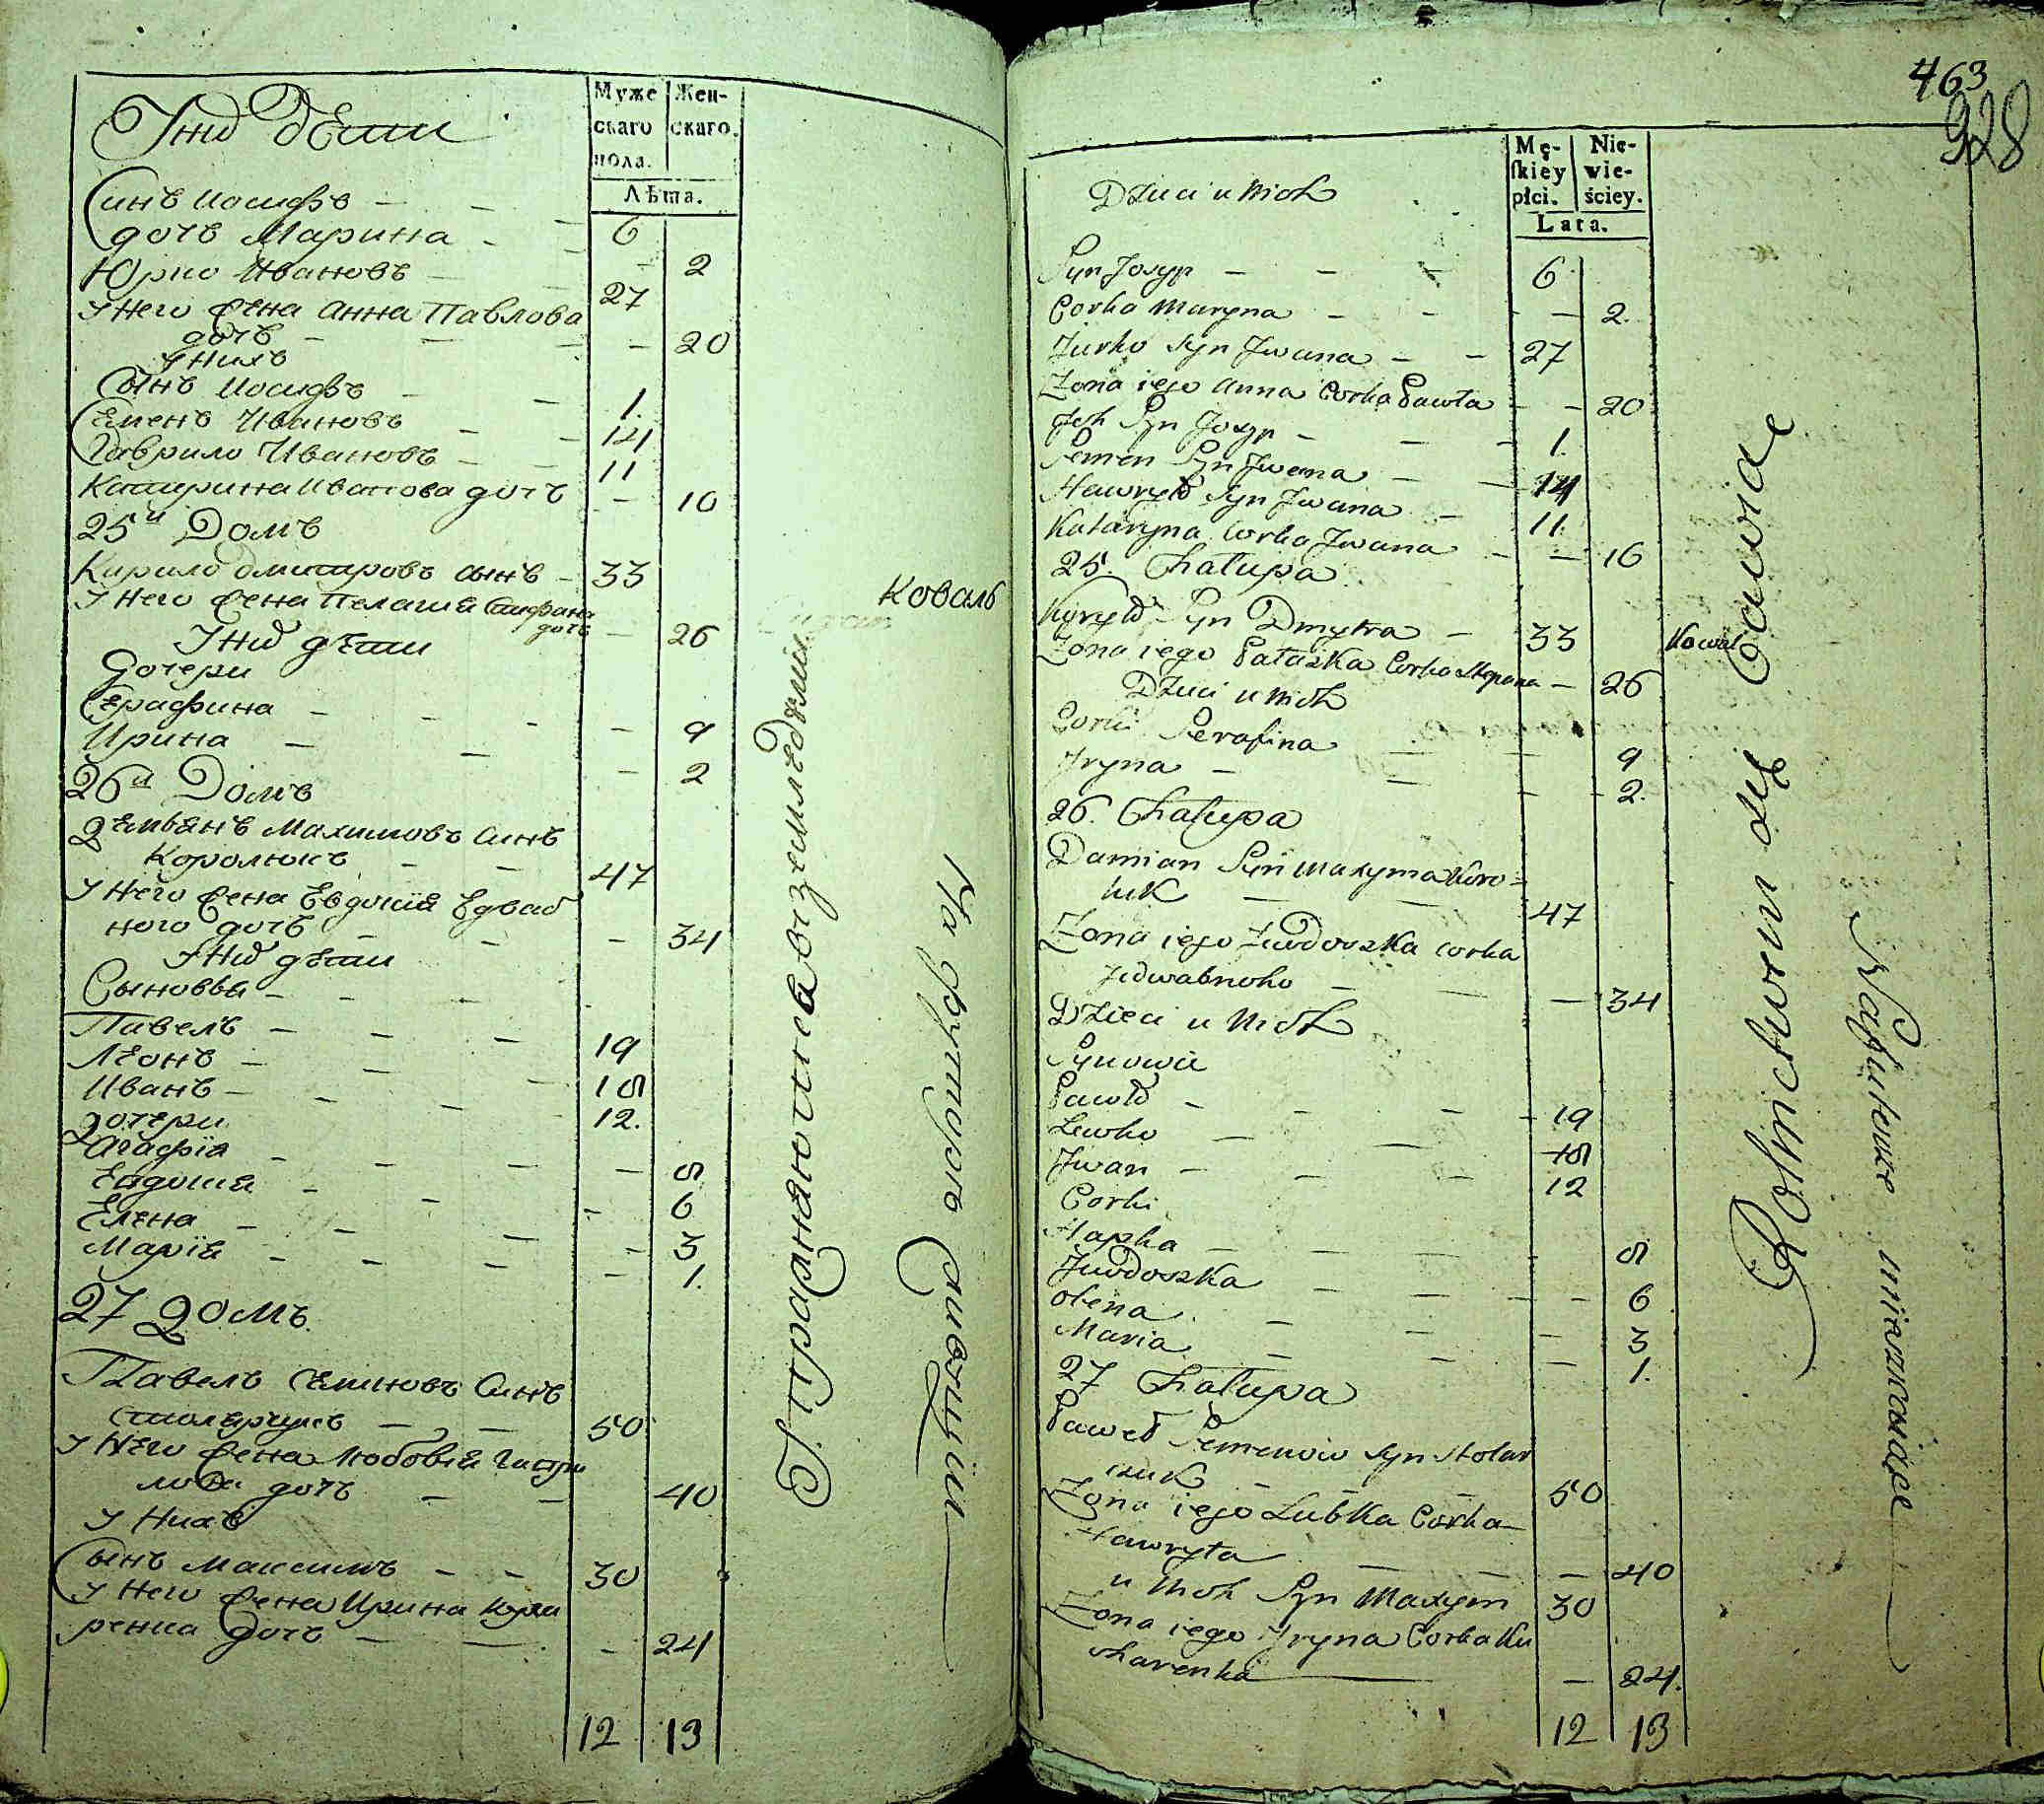 У ныхъ дѣти
Муже
скаго
пола.
Жен-
скаго.
Лѣта.
Синъ Иосифъ - - - 6
дочъ Марина - - - 2
Юрко Ивановъ - - 27
У него жена Анна Павлова
дочъ - - - - 20
У нихъ
Сынъ Иосифъ - - 1.
Семенъ Ивановъ - - 14
Гаврило Ивановъ - - 11
Катирина Иванова дочъ - 10
25й Домъ
Кирило Дмитровъ сынъ - 33
Коваль
У него жена Пелагия Стифана
дочъ - 26
У ныхъ дѣти
Дочери
Серафина - - - - 9
Ирина - - - 2
26й Домъ
Демьянъ Махимовъ Синъ
Королюкъ - - 47
У него жена Евдокия Едваб
ного дочъ - - - 34
У ныхъ дѣти
Сыновья - - -
Павелъ - - - 19
Леонъ - - - 18
Иванъ - - - 12.
Дочери
Агафiя - - - - 8
Евдокия - - - 6
Елена - - - - 3
Марiя - - - - 1.
27 Домъ
Павелъ Семиновъ Синъ
Столярчукъ - - 50
У него жена Любовiя Гаври
лова дочъ - - 40
У нихъ
Сынъ Максимъ - - 30
У него жена Ирина Куха
ренка дочъ - - - 24
12 13
Упражняютися въ земледѣлии
На грунтахъ Скарбнцiи
463
928
Dzieci u Nich
Mę-
ſkiey
płci.
Nie-
wie-
ściey.
Lata.
Syn Josyp - - - 6
Corka Maryna - - - - 2.
Jurko Syn Jwana - - 27
Zona iego Anna Corka Pawła - - 20
Jch Syn Josyp - - - 1.
Semen Syn Jwana - - 14
Hawryło Syn Jwana - 11.
Kataryna Corka Jwana - - 16
25. Chałupa
Kyryło Syn Dmytra - 33
Kowal
Zona iego Pałaszka Corka Stepana - 26
Dzieci u Nich
Corki Serafina - - - 9
Jryna - - - - 2.
26. Chałupa
Damian Syn Maxyma Koro-
luk - - 47
Zona iego Jewdoszka corka
Jedwabnoho - - - 34
Dzieci u Nich
Synowie
Pawło - - - - 19
Lewko - - - 18
Jwan - - - 12
Corki
Hapka - - - - 8
Jewdoszka - - - - 6
Olena - - - 3
Maria - - - 1.
27 Chałupa
Paweł Semenow Syn Stolar
czuk - - - 50
Zona iego Lubka Corka
Hawryła - - - 40
u Nich Syn Maxym 30
Zona iego Jryna Corka Ku
charenka - 24.
12 13
Rolnictwem się bawią